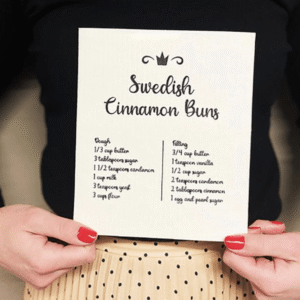 Swedish
Cinnamon Buns
Dough
1/3 cup butter
3 tablespoons sugar
1 1/2 teaspoons cardamon
1 cup milk
3 teaspoons yeast
3 cups flour
Filling
3/4 cup butter
1 teaspoon vanilla
1/2 cup sugar
2 teaspoons cardamon
2 tablespoons cinnamon
1 egg and pearl sugar